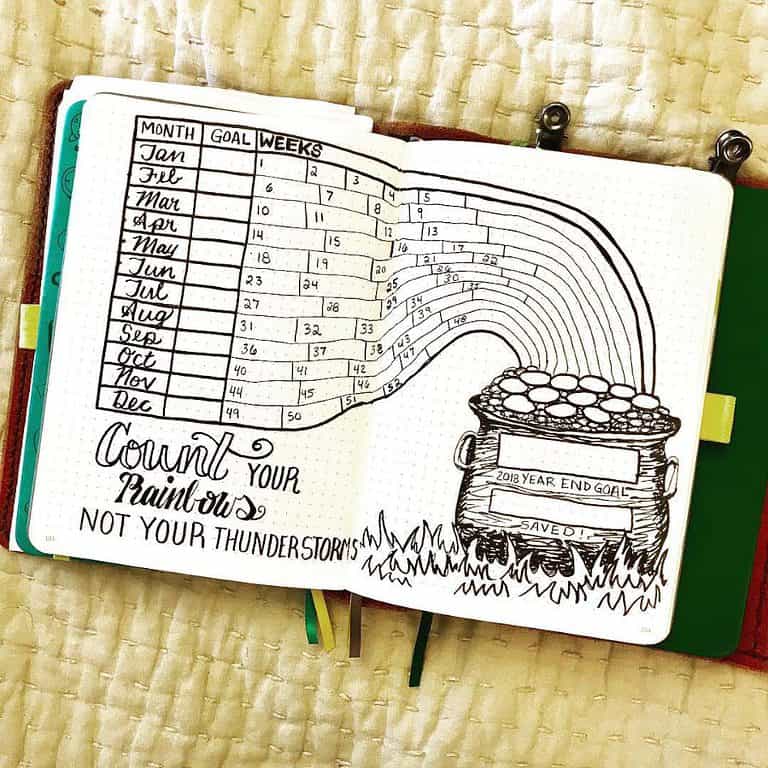 MONTH GOAL WEEKS
Jan 1 2 3 4 5
Feb 6 7 8 9
Mar 10 11 12 13
Apr 14 15 16 17
May 18 19 20 21 22
Jun 23 24 25 26
Jul 27 28 29 30
Aug 31 32 33 34
Sep 36 37 38 39
Oct 40 41 42 43
Nov 44 45 46 47 48
Dec 49 50 51 52
Count YOUR
Rainbows
NOT YOUR THUNDERSTORMS
2018 YEAR END GOAL
SAVED!